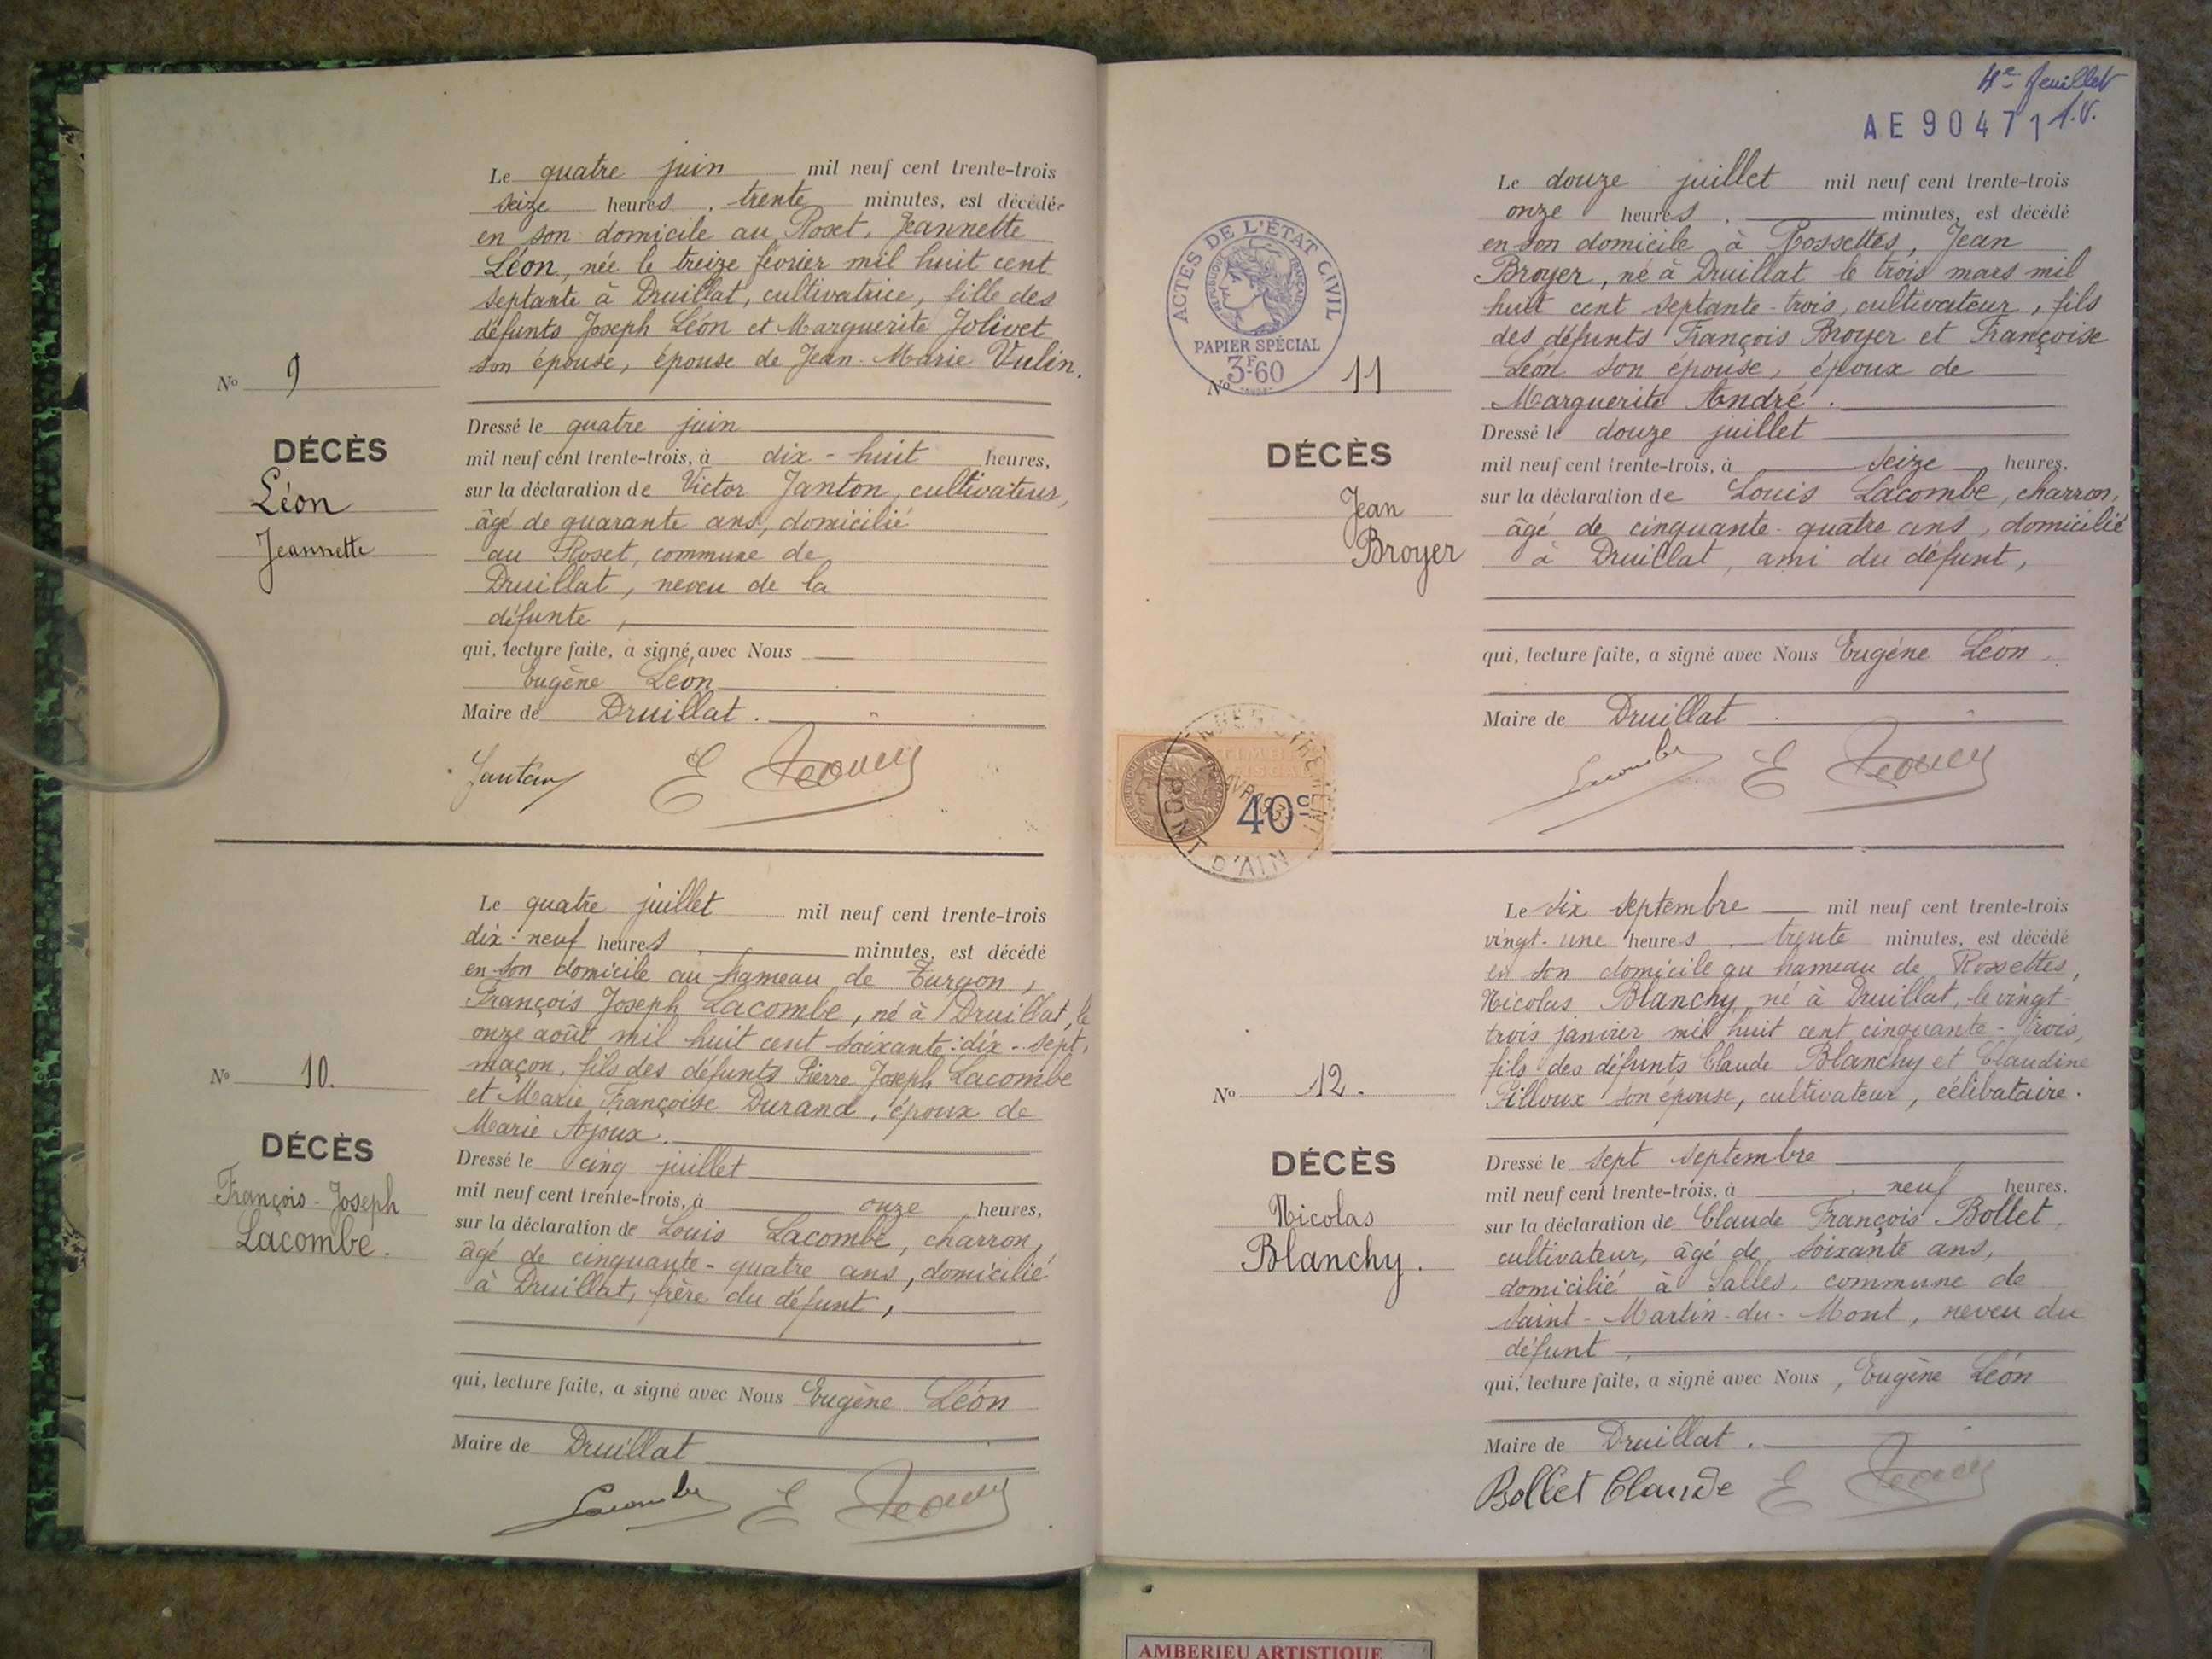 Le quatre juin mil neuf cent trente-trois
seize heures, trente minutes, est décédée
en son domicile au Roset, Jeannette
Léon, née le treize février mil huit cent
septante à Druillat, cultivatrice, fille des
défunts Joseph Léon et Marguerite Jolivet
son épouse, épouse de Jean-Marie Vulin.
No 9
DÉCÈS
Léon
Jeannette
Dressé le quatre juin
mil neuf cent trente-trois, à dix-huit heures,
sur la déclaration de Victor Janton, cultivateur,
âgé de quarante ans, domicilié
au Roset, commune de
Druillat, neveu de la
défunte,
qui, lecture faite, a signé avec Nous
Eugène Léon
Maire de Druillat.
Le quatre juillet mil neuf cent trente-trois
dix-neuf heures minutes, est décédé
en son domicile au hameau de Turgon,
François Joseph Lacombe, né à Druillat, le
onze août mil huit cent soixante-dix-sept,
maçon, fils des défunts Pierre Joseph Lacombe
et Marie Françoise Durand, époux de
Marie Ajoux.
No 10.
DÉCÈS
François-Joseph
Lacombe.
Dressé le cinq juillet
mil neuf cent trente-trois, à onze heures,
sur la déclaration de Louis Lacombe, charron,
âgé de cinquante-quatre ans, domicilié
à Druillat, frère du défunt,
qui, lecture faite, a signé avec Nous Eugène Léon
Maire de Druillat
Lacombe E
4e feuillet
AE 90471
Le douze juillet mil neuf cent trente-trois
onze heures. minutes, est décédé
en son domicile à Rossettes, Jean
Broyer, né à Druillat le trois mars mil
huit cent septante-trois, cultivateur, fils
des défunts François Broyer et Françoise
Léon son épouse, époux de
Marguerite André.
ACTES DE L'ÉTAT CIVIL
RÉPUBLIQUE FRANÇAISE
PAPIER SPÉCIAL
3F60
No 11
DÉCÈS
Jean
Broyer
Dressé le douze juillet
mil neuf cent trente-trois, à seize heures,
sur la déclaration de Louis Lacombe, charron,
âgé de cinquante-quatre ans, domicilié
à Druillat, ami du défunt,
qui, lecture faite, a signé avec Nous Eugène Léon
Maire de Druillat
Lacombe E
TIMBRE
FISCAL
40c
ENREGISTREMENT
PONT D'AIN
Le six septembre mil neuf cent trente-trois
vingt-une heures. trente minutes, est décédé
en son domicile au hameau de Rossettes,
Nicolas Blanchy, né à Druillat, le vingt-
trois janvier mil huit cent cinquante-trois,
fils des défunts Claude Blanchy et Claudine
Pilloux son épouse, cultivateur, célibataire.
No 12.
DÉCÈS
Nicolas
Blanchy.
Dressé le sept septembre
mil neuf cent trente-trois, à neuf heures.
sur la déclaration de Claude François Bollet,
cultivateur, âgé de soixante ans,
domicilié à Salles, commune de
Saint-Martin-du-Mont, neveu du
défunt,
qui, lecture faite, a signé avec Nous, Eugène Léon
Maire de Druillat.
Bollet Claude E
AMBERIEU ARTISTIQUE